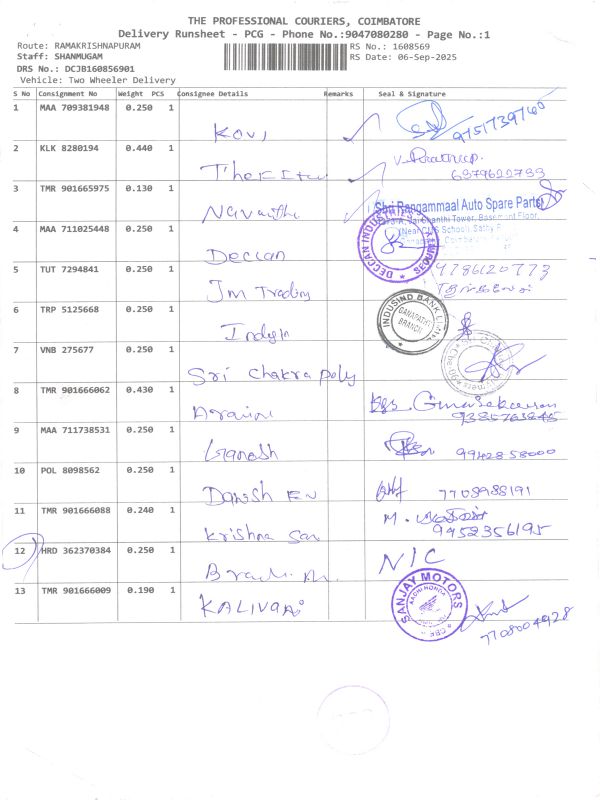 THE PROFESSIONAL COURIERS, COIMBATORE
Delivery Runsheet - PCG - Phone No.:9047080280 - Page No.:1
Route: RAMAKRISHNAPURAM RS No.: 1608569
Staff: SHANMUGAM RS Date: 06-Sep-2025
DRS No.: DCJB160856901
Vehicle: Two Wheeler Delivery
S No Consignment No Weight PCS Consignee Details Remarks Seal & Signature
1 MAA 709381948 0.250 1
Kovi 9751739760
2 KLK 8280194 0.440 1
V. Prathap.
6379622733
3 TMR 901665975 0.130 1
Shri Rangammaal Auto Spare Parts
4 MAA 711025448 0.250 1
Deccan DECCAN INDUSTRIES
5 TUT 7294841 0.250 1
9786120773
Jm Trading
6 TRP 5125668 0.250 1
INDUSIND BANK LTD
GANAPATHY
BRANCH
7 VNB 275677 0.250 1
Sri Chakra poly
8 TMR 901666062 0.430 1
9385763845
9 MAA 711738531 0.250 1
Ganesh 9942858000
10 POL 8098562 0.250 1
Danish En 7708988191
11 TMR 901666088 0.240 1
M.
Krishna San 9952356195
12 HRD 362370384 0.250 1
NIC
13 TMR 901666009 0.190 1
SANJAY MOTORS
7708004928